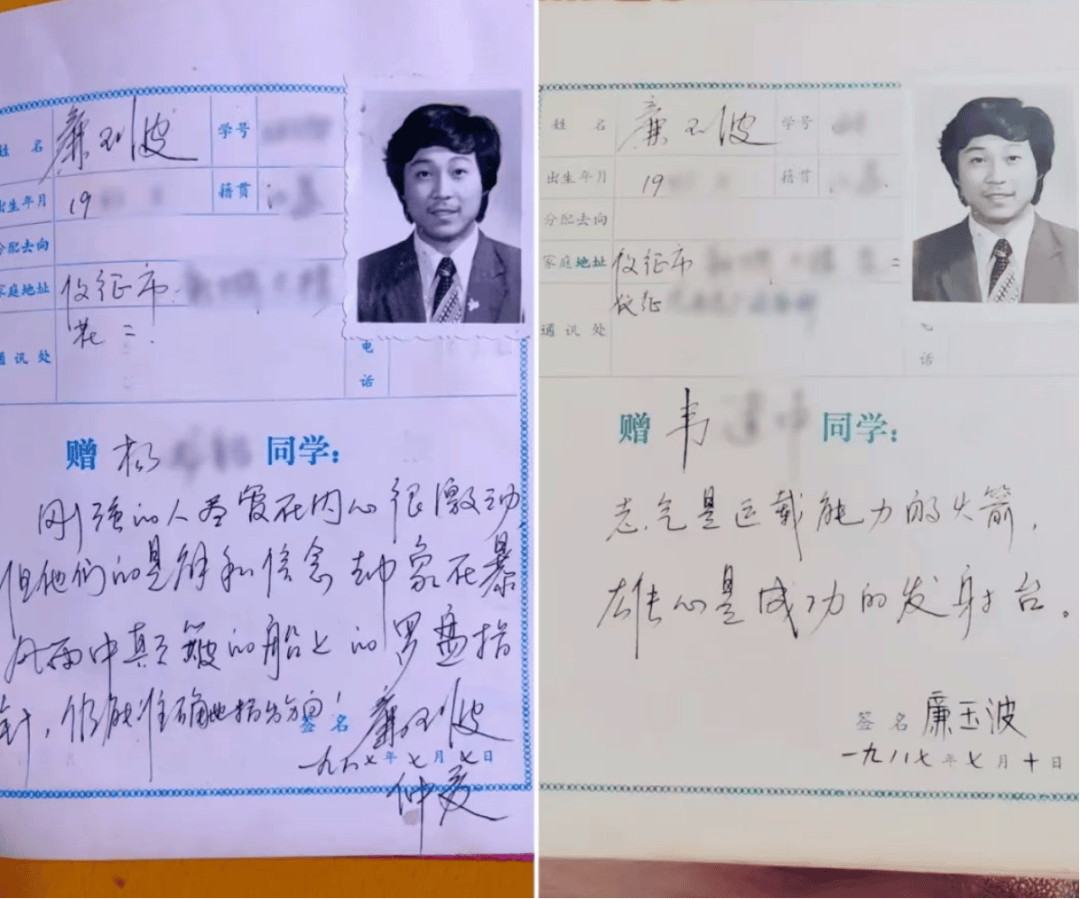 姓名 廉玉波 学号
出生年月 19 籍贯 江
分配去向
家庭地址 仪征市
花二.
通讯处
电话
赠 杨 同学：
刚强的人尽管在内心很激动，
但他们的见解和信念却象在暴
风雨中颠簸的船上的罗盘指
针，仍能准确地指出方向！
签名 廉玉波
一九八七年七月七日
仲夏
姓名 廉玉波 学号
出生年月 19 籍贯
分配去向
家庭地址 仪征市
仪征
通讯处
电话
赠 韦 同学：
志气是运载能力的火箭，
雄心是成功的发射台。
签名 廉玉波
一九八七年七月十日